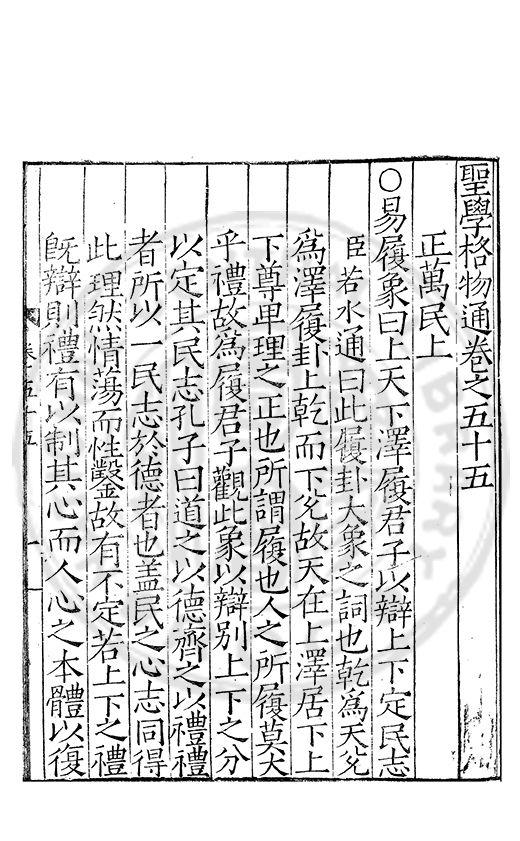 聖學格物通卷之五十五
正萬民上
○易履象曰上天下澤履君子以辯上下定民志
臣若水通曰此履卦大象之詞也乾爲天兊
爲澤履卦上乾而下兊故天在上澤居下上
下尊甲理之正也所謂履也人之所履莫大
乎禮故爲履君子觀此象以辯別上下之分
以定其民志孔子曰道之以德齊之以禮禮
者所以一民志於德者也盖民之心志同得
此理然情蕩而性鑿故有不定若上下之禮
旣辯則禮有以制其心而人心之本體以復
卷之五十五
一